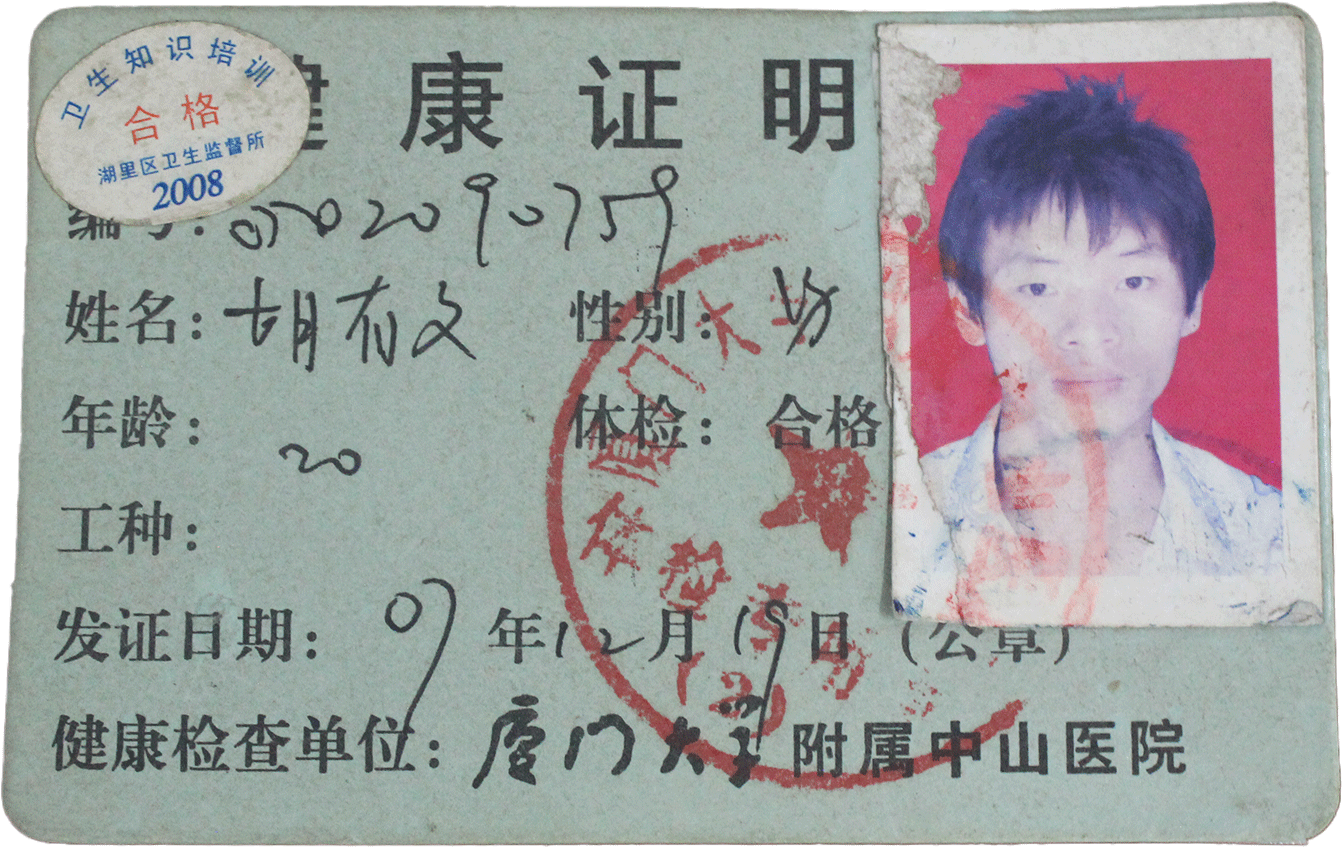 卫生知识培训
合格
湖里区卫生监督所
2008
健康证明
编号: 0502090759
姓名: 胡有文 性别: 男
年龄: 20 体检: 合格
工种:
发证日期: 07年12月19日 (公章)
健康检查单位: 厦门大学附属中山医院
厦门大